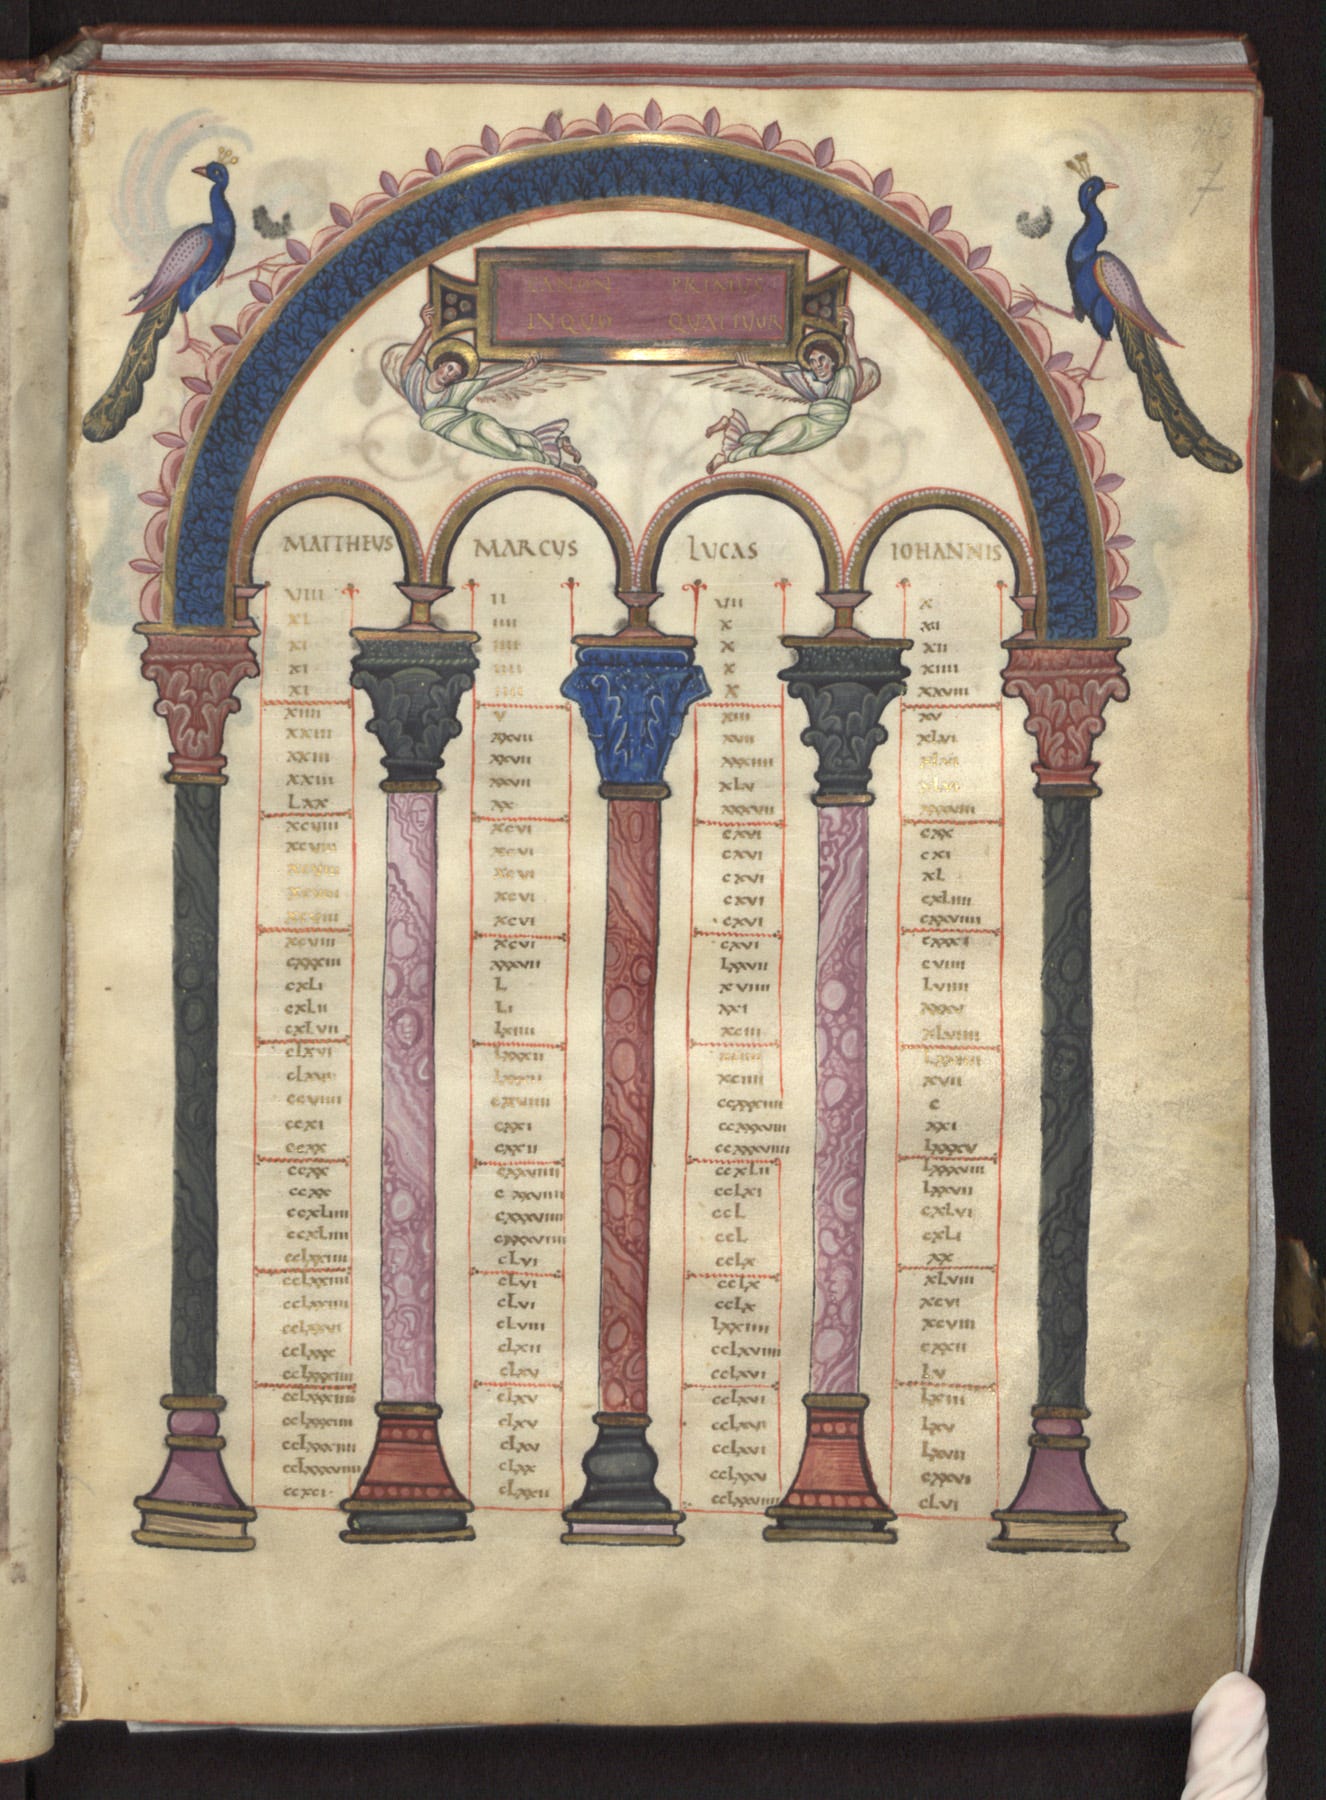 KANON PRIMUS
INQUO QUATTUOR
MATTHEUS MARCUS LUCAS IOHANNIS
VIII II VII X
XI IIII X XI
XI IIII X XII
XI IIII X XIIII
XI IIII X XXVIII
XIIII V XIII XV
XXIII XXVII XVII XLVI
XXIII XXVII XXXIIII XLVI
XXIII XXVII XLV XLVI
LXX XX XXXVII XXXVIII
XCVIII XCVI CXVI CXX
XCVIII XCVI CXVI CXI
XCVIII XCVI CXVI XL
XCVIII XCVI CXVI CXLIIII
XCVIII XCVI CXVI CXXVIIII
XCVIII XCVI CXVI CXXXI
CXXXIII XXXVII LXXVII CVIIII
CXLI L XVIIII LVIIII
CXLII LI XXI XXXV
CXLVII LXIIII XCIII XLVIIII
CLXVI LXXXII
CLXVI LXXXII XCIIII XVII
CCVIIII CXVIIII CCXXXIIII C
CCXI CXXI CCXXXVIII XXI
CCXX CXXII CCXXXVIIII LXXXV
CCXX CXXVIIII CCXLII LXXXVIII
CCXX CXXVIIII CCLXI LXXVII
CCXLIIII CXXXVIIII CCL CXLVI
CCXLIIII CXXXVIIII CCL CXLI
CCLXXIIII CLVI CCLX XX
CCLXXIIII CLVI CCLX XLVIII
CCLXXIIII CLVI CCLX XCVI
CCLXXVI CLVIII LXXIIII XCVIII
CCLXXX CLXII CCLXVIIII CXXII
CCLXXXIIII CLXV CCLXVI LV
CCLXXXIIII CLXV CCLXVI LXIII
CCLXXXIIII CLXV CCLXVI LXV
CCLXXXIIII CLXV CCLXVI LXVII
CCLXXXVIIII CLXX CCLXXV CXXVI
CCXCI CLXXII CCLXXVIIII CLVI
7